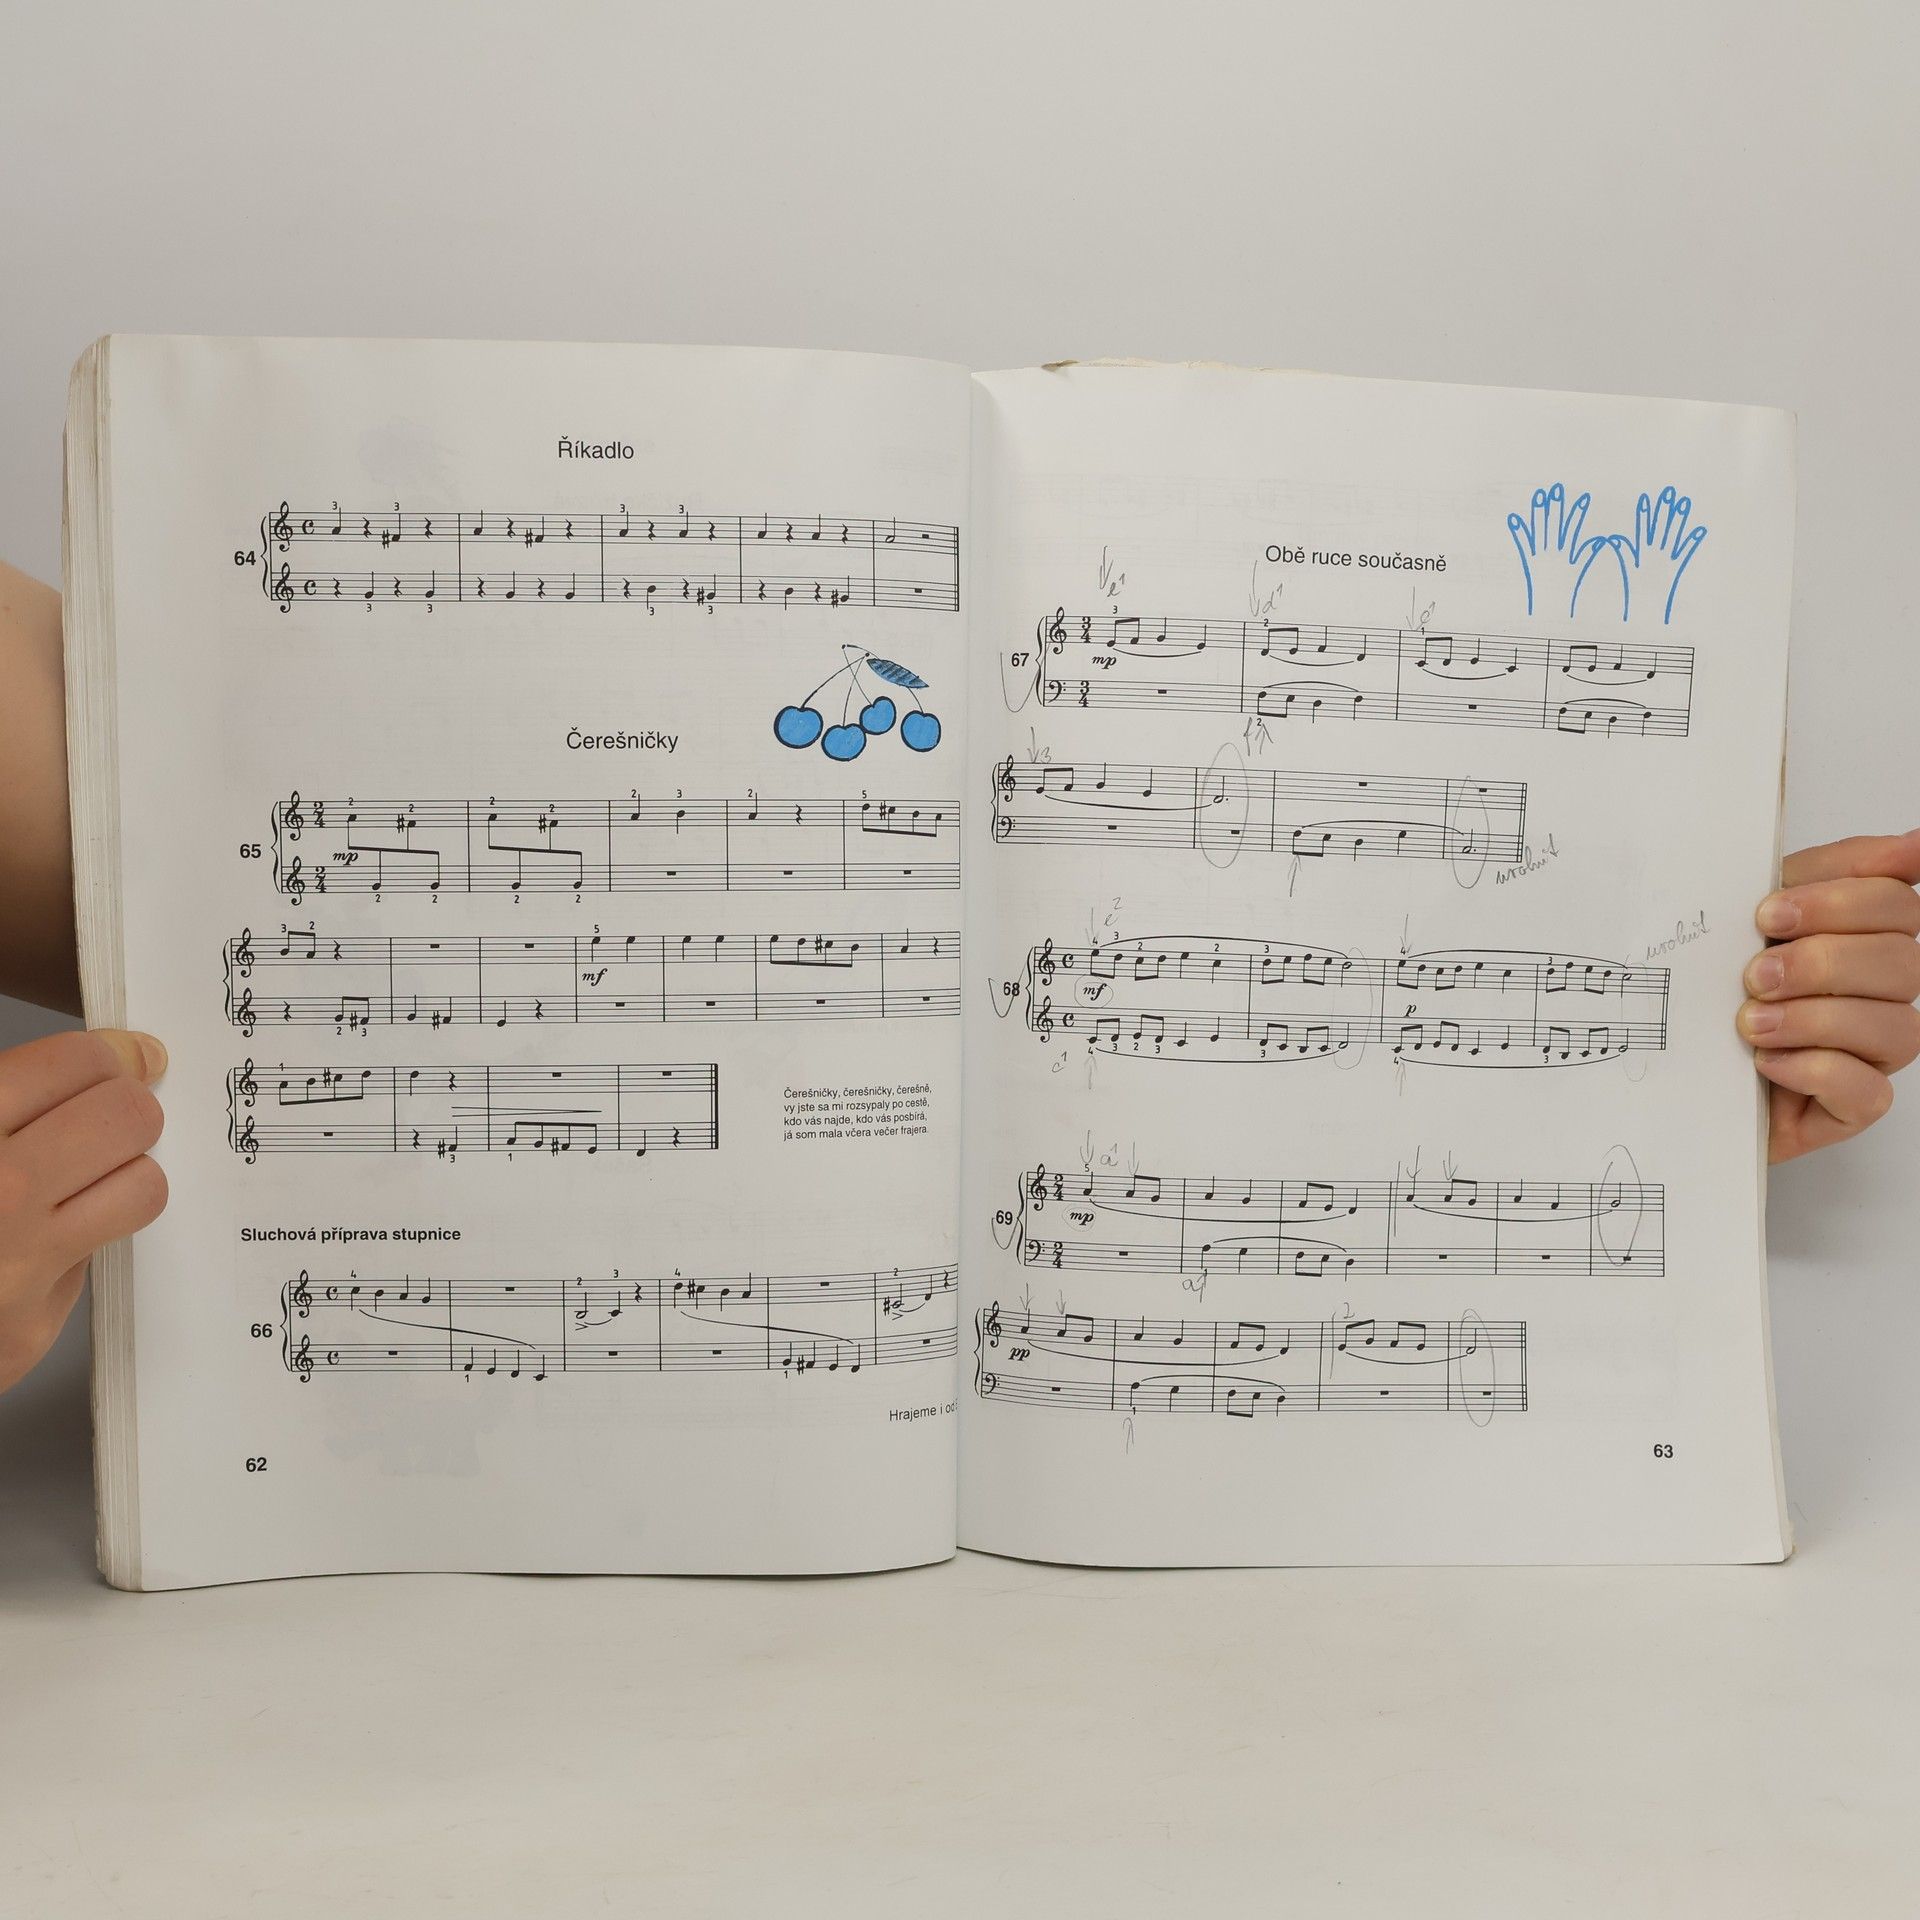 Říkadlo
64
Čerešničky
65
mp
mf
Čerešničky, čerešničky, čerešně,
vy jste sa mi rozsypaly po cestě,
kdo vás najde, kdo vás posbírá,
já som mala včera večer frajera.
Sluchová příprava stupnice
66
Hrajeme i od
62
Obě ruce současně
e¹
d¹
67
mp
3
uvolnit
e²
uvolnit
68
mf
p
c¹
a¹
69
mp
2
pp
63